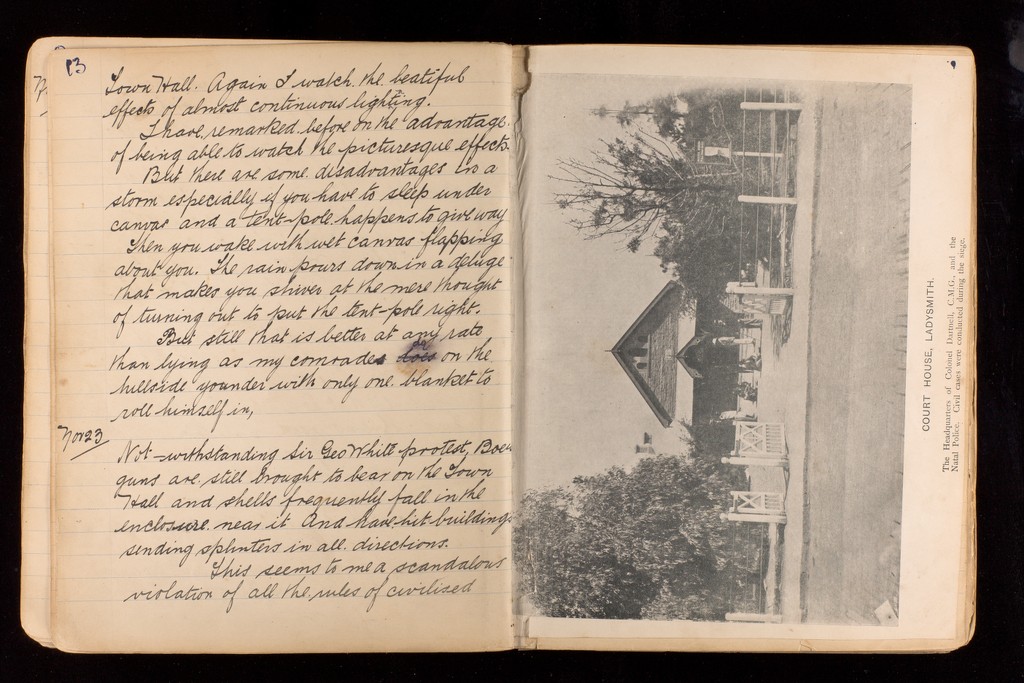 13
Town Hall. Again I watch the beatiful
effects of almost continuous lighting.
I have remarked before on the advantage
of being able to watch the picturesque effects
But there are some disadvantages in a
storm especially if you have to sleep under
canvas and a tent-pole happens to give way
Then you wake with wet canvas flapping
about you. The rain pours down in a deluge
that makes you shiver at the mere thought
of turning out to put the tent-pole right.
But still that is better at any rate
than lying as my comrades on the
hillside yonder with only one blanket to
roll himself in,
Nov 23
Not-withstanding Sir Geo White protest, Boer
guns are still brought to bear on the Town
Hall and shells frequently fall in the
enclosure near it and have hit buildings
sending splinters in all directions.
This seems to me a scandalous
violation of all the rules of civilized
COURT HOUSE, LADYSMITH.
The Headquarters of Colonel Dartnell, C.M.G., and the
Natal Police. Civil cases were conducted during the siege.